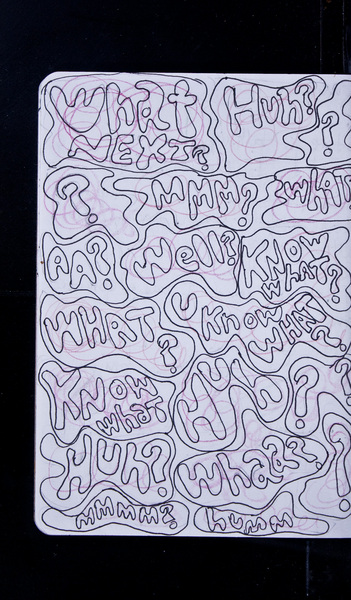 What Huh?
NEXT? ?
?. MMM? WHAT
AA? Well? KNOW
WHAT?
WHAT U Know
? WHAT ?
KNOW HUH ?
what ?
HUH? whaa? ?
MMMM? humm